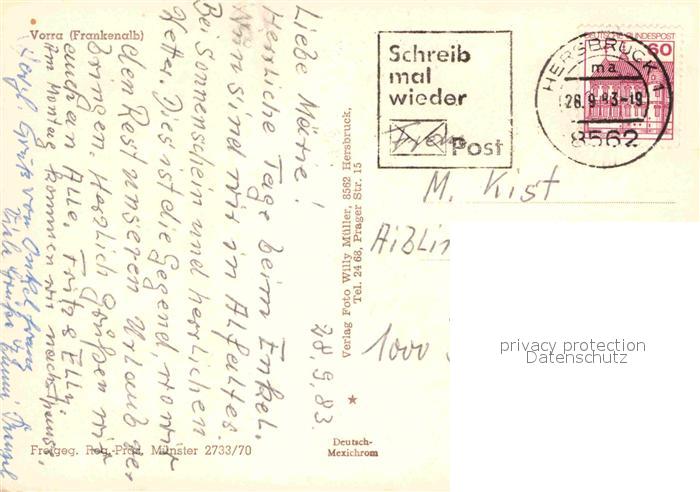 Vorra (Frankenalb)
Liebe Märie!
Herrliche Tage beim Enkel.
Nun sind wir in Alfeltes.
Bei Sonnenschein und herrlichen
Wetter. Dies ist die Gegend, wo wir
den Rest unseren Urlaub ver
bringen. Herzlich Grüßen wir
euchen Alle. Fritze Elly.
Am Montag kommen wir nach Hause.
Grüß von Onkel Franz
28.9.83.
Verlag Foto Willy Müller, 8562 Hersbruck,
Tel. 24 68, Prager Str. 15
Schreib
mal
wieder
Post
DEUTSCHE BUNDESPOST
60
HERSBRUCK 1
ma
28.9.83-19
8562
Frau
M. Kist
Aiblin
1000
privacy protection
Datenschutz
Deutsch-
Mexichrom
Freigeg. Reg.-Präs. Münster 2733/70